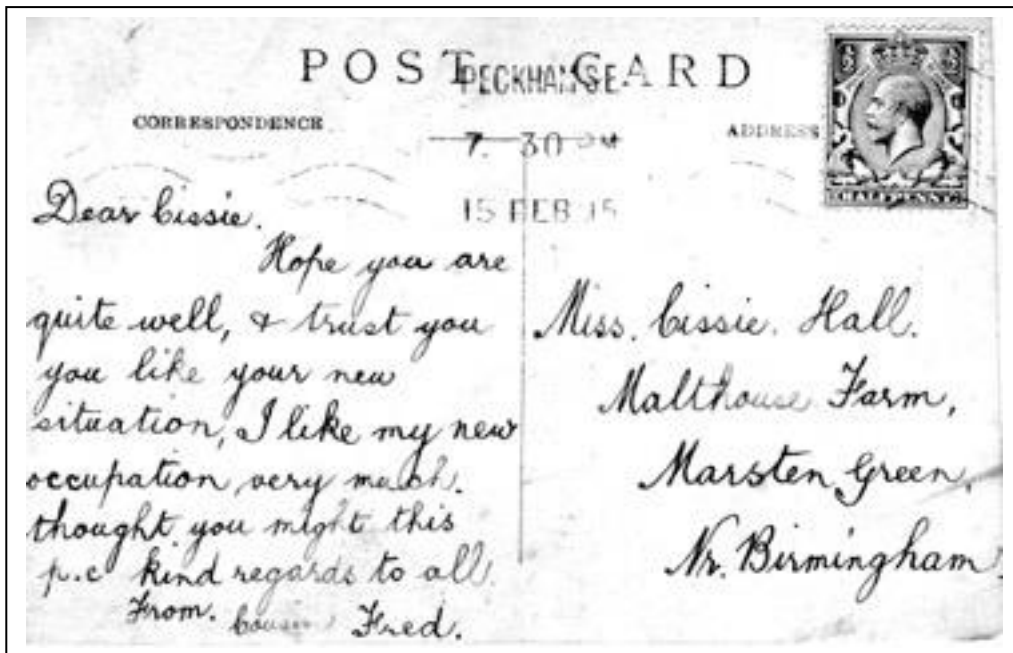 POST CARD
PECKHAM S E
CORRESPONDENCE
7. 30 PM
ADDRESS
15 FEB 15
HALFPENNY
Dear Cissie.
Hope you are
quite well, & trust you
you like your new
situation, I like my new
occupation very much.
thought you might this
p.c kind regards to all.
From. Cousin Fred.
Miss. Cissie. Hall.
Malthouse Farm,
Marsten Green,
Nr. Birmingham.